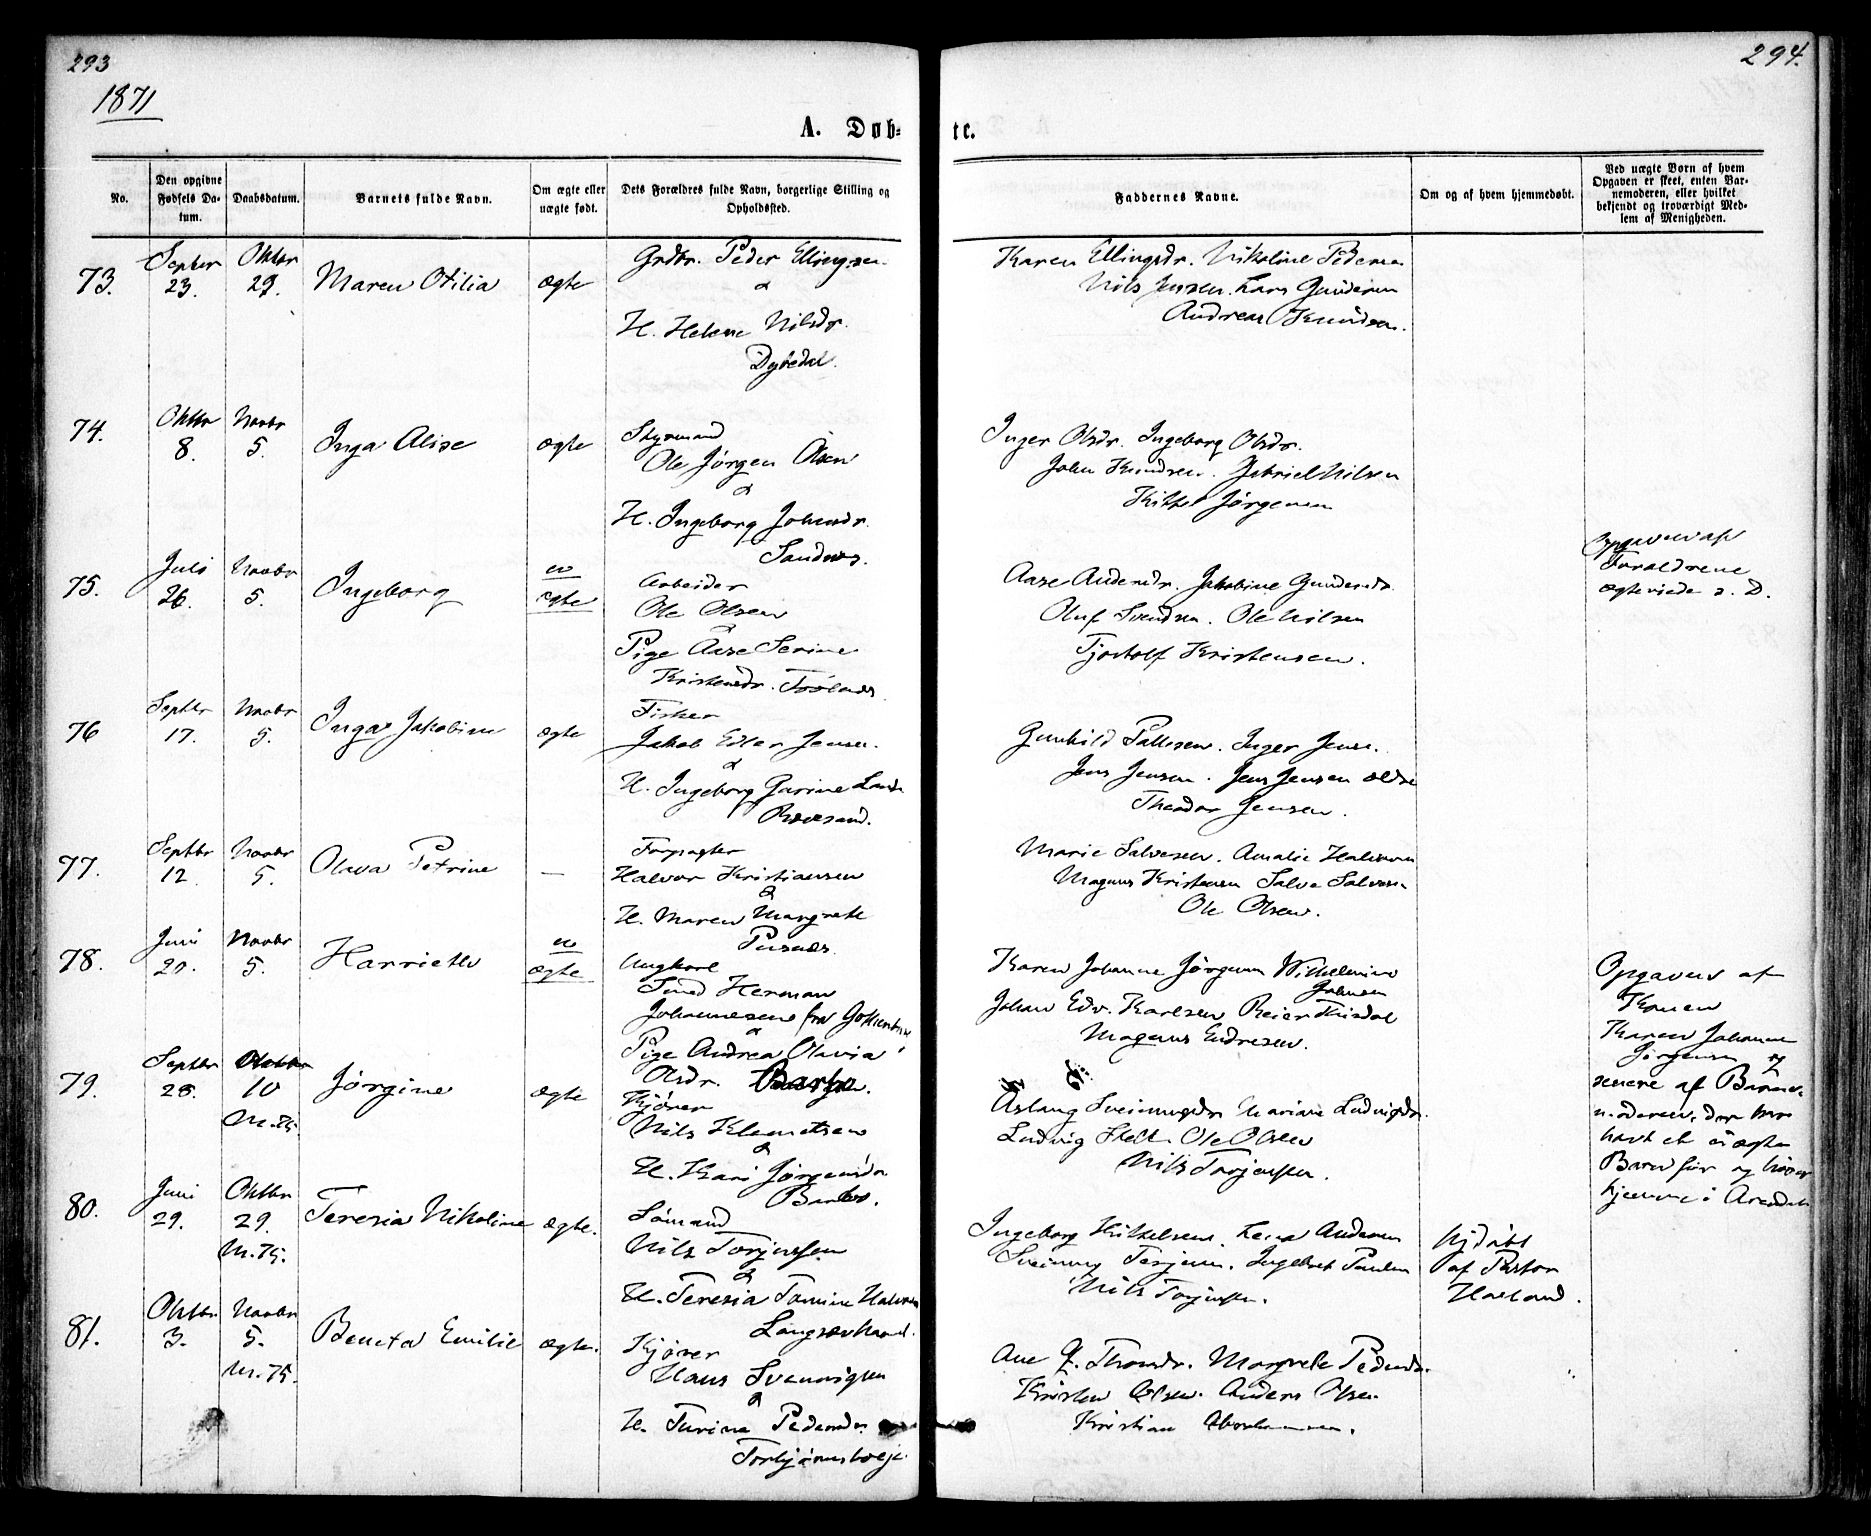 293
294.
1871
A. Døb-
te.
No.
Den opgivne Fødsels Da-tum.
Daabsdatum.
Barnets fulde Navn.
Om ægte eller uægte født.
Dets Forældres fulde Navn, borgerlige Stilling og Opholdssted.
Faddernes Navne.
Om og af hvem hjemmedøbt.
Ved uægte Børn af hvem Opgaven er skeet, enten Bar-nemoderen, eller hvilket bekjendt og troværdigt Med-lem af Menigheden.
73.
Septbr 23.
Oktbr 29.
Maren Otilia
ægte
Grdbr. Peder Ellingsen
&
H. Helene Nilsdr.
Dybedal.
Karen Ellingsdr. Nikoline Pedersen
Nils Jensen. Lars Gundersen
Andreas Knudsen.
74.
Oktbr 8.
Novbr 5.
Inga Alise
ægte
Styrmand
Ole Jørgen Olsen
&
H. Ingeborg Johnsdr.
Sandnes.
Inger Olsdr. Ingeborg Olsdr.
John Knudsen. Gabriel Nilsen
Kittel Jørgensen
75.
Juli 26.
Novbr 5.
Ingeborg
u
ægte
Arbeider
Ole Olsen
&
Pige Aase Serine
Kristensdr.
Aase Andersdr. Jakobine Gundersdr.
Oluf Svendsen. Ole Nilsen
Kristensen.
Opgaven af
Forældrene
ægteviede s. D.
76
Septbr 17.
Novbr 5.
Inga Jakobine
ægte
Fisker
Jakob Edler Jensen.
&
H. Ingeborg Gurine
Revesand.
Gunhild Pallesen. Inger Jensen.
Jens Jensen. Jens Jensen ældre
Theodor Jensen.
77.
Septbr 12
Novbr 5.
Olava Petrine
—
Forpagter
Halvor Kristiansen
&
H. Maren Margrete
Pusnes.
Marie Salvesen. Amalie Halvorsen
Magnus Kristensen Salve Salvesen
Ole Olsen.
78.
Juni
Novbr 5.
Harriette
u
ægte
Ungkarl
Smed Herman
Johannesen fra Gothenburg
&
Pige Andrea Olavia
Olsdr. Barbo.
Karen Johanne Jørgensen Wilhelmine
Johnsen
Johan Edv. Karlsen
Magnus Endresen.
Opgaven af
Konen
Karen Johanne
Jørgensen og
senere af Barne-
moderen, der har
havt et uægte
Barn før og hører
hjemme i Arendal
79.
Septbr 28.
Oktbr
10
M. 75.
Jørgine
ægte
Kjører
Nils Klemetsen
&
H. Kari Jørgensdr
Barbo.
Aslaug Sveinungsdr Mariane Ludvigsdr.
Ludvig Olsen
Nils Torjussen.
80.
Juni 29.
Oktbr 29.
M. 75.
Teresia Nikoline
ægte.
Sømand
Nils Torjussen
&
H. Teresia Tomine Halvorsen
Langsævhaand.
Ingeborg Kittelsen. Lena Andersen
Sveinung Terjesen. Ingebret Paulsen
Nils Torjussen.
Hjdøbt
af Pastor
Harland.
81.
Oktbr. 3.
Novbr 5.
M. 75.
Beneta Emilie
ægte.
Kjører
Hans Svennigsen
&
H. Turine Pedersdr.
Torbjørnsbolje
Ane G. Thomsdr. Margrete Pedersdr.
Kristen Olsen. Anders Olsen
Kristian Abrahamsen.